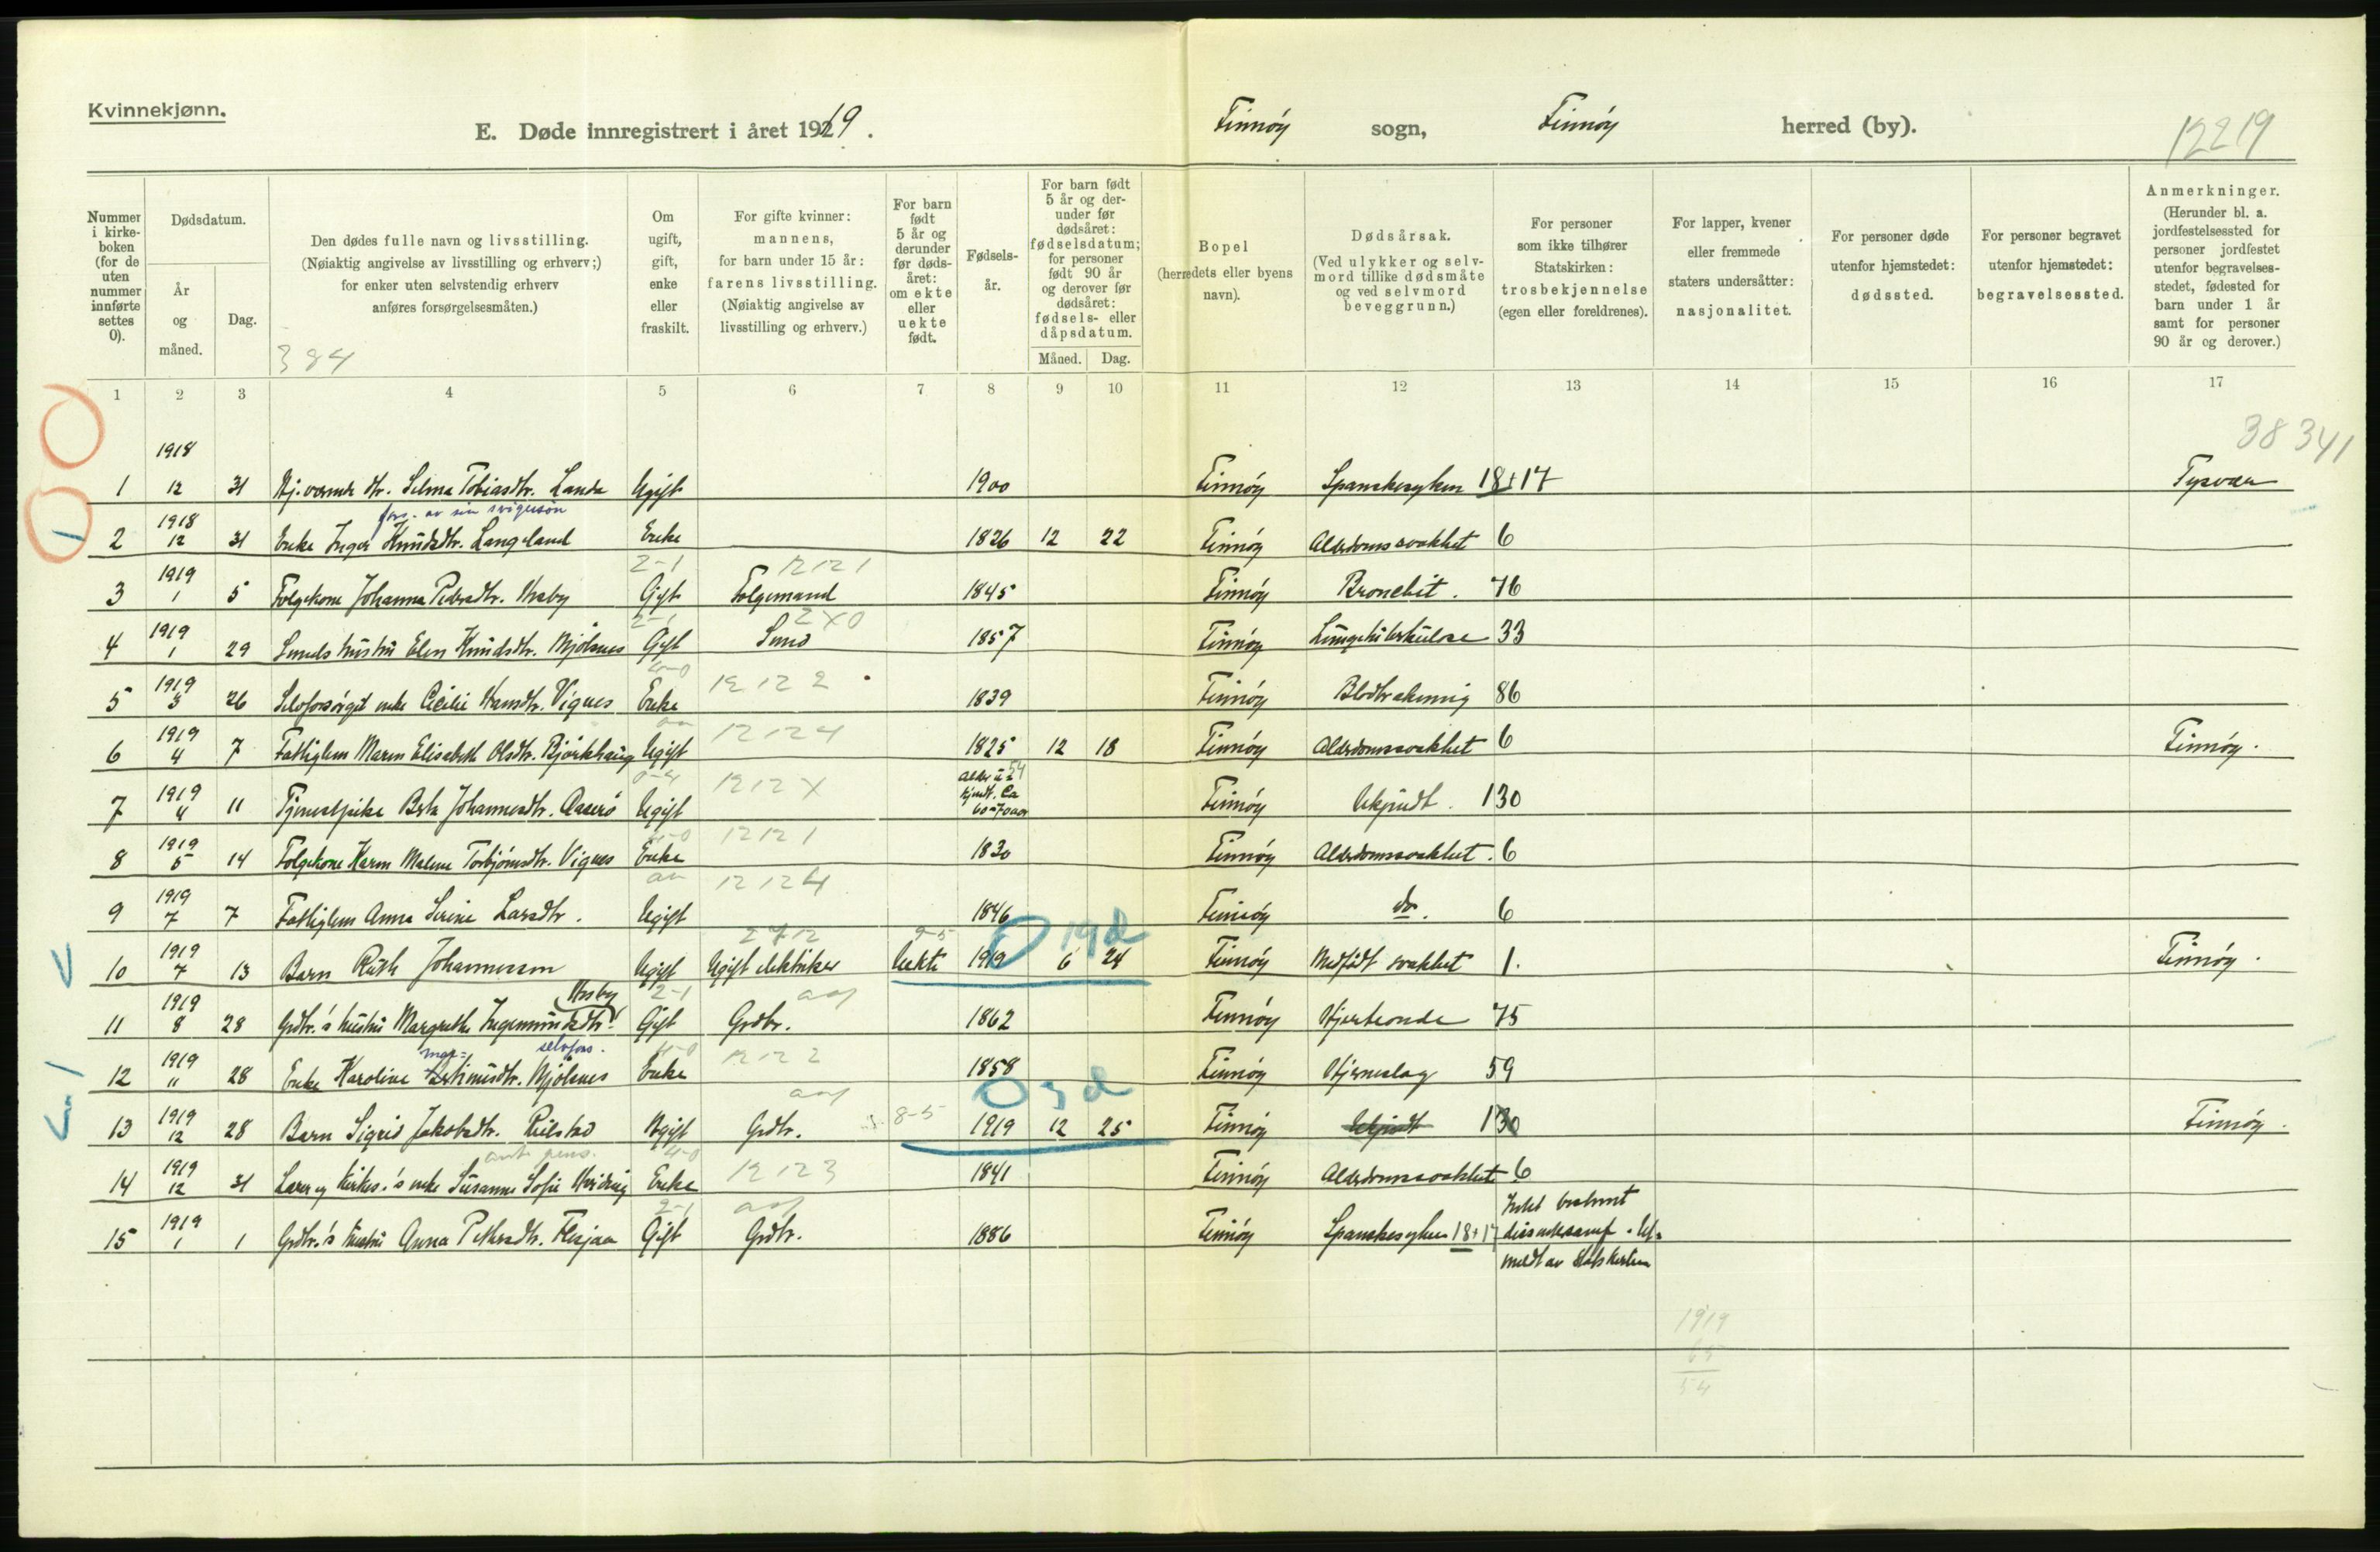 Kvinnekjønn.
E. Døde innregistrert i året 1919.
Finnøy sogn, Finnøy herred (by).
12219
Nummer i kirkeboken (for de uten nummer innførte settes 0).
Dødsdatum.
År og måned.
Dag.
Den dødes fulle navn og livsstilling.
(Nøiaktig angivelse av livsstilling og erhverv;)
for enker uten selvstendig erhverv
anføres forsørgelsesmåten.)
384
Om ugift, gift, enke eller fraskilt.
For gifte kvinner: mannens, for barn under 15 år: farens livsstilling. (Nøiaktig angivelse av livsstilling og erhverv.)
For barn født 5 år og derunder før dødsåret: om ekte eller uekte født.
Fødselsår.
For barn født 5 år og derunder før dødsåret: fødselsdatum; for personer født 90 år og derover før dødsåret: fødsels- eller dåpsdatum.
Måned. Dag.
Bopel (herredets eller byens navn).
Dødsårsak. (Ved ulykker og selvmord tillike dødsmåte og ved selvmord beveggrunn.)
For personer som ikke tilhører Statskirken: trosbekjennelse (egen eller foreldrenes).
For lapper, kvener eller fremmede staters undersåtter: nasjonalitet.
For personer døde utenfor hjemstedet: dødssted.
For personer begravet utenfor hjemstedet: begravelsessted.
Anmerkninger. (Herunder bl. a. jordfestelsessted for personer jordfestet utenfor begravelsesstedet, fødested for barn under 1 år samt for personer 90 år og derover.)
1 2 3 4 5 6 7 8 9 10 11 12 13 14 15 16 17
38341
1918
1 12 31 Hj. værende dtr. Selma Tobiasdtr. Landa Ugift 1900 Finnøy Spanskesyken 18+17 Tysvær
fors. av sin svigersøn
1918
2 12 31 Enke Inger Knudsdtr. Langeland Enke 1826 12 22 Finnøy Alderdomssvakhet 6
2-1 12121
1919
3 1 5 Folgekone Johanna Pedersdtr. Hesby Gift Folgemand 1845 Finnøy Bronchit. 76
2-1 2X0
1919
4 1 29 Smeds hustru Elen Knudsdtr. Mjølsnes Gift Smed 1857 Finnøy Lungetuberkulose 33
4-0 12122
1919
5 3 26 Selvforsørget enke Cecilie Hansdtr. Vignes Enke 1839 Finnøy Blodtrækning 86
12124
1919
6 4 7 Fattiglem Maren Elisabeth Olsdtr. Bjørkhaug Ugift 1825 12 18 Finnøy Alderdomssvakhet 6 Finnøy.
1212X 54
1919
7 4 11 Tjenestpike Berta Johannesdtr. Ugift Alder ukjendt. Ca 60-70 aar Finnøy Ukjendt. 130
4-0 12121
1919
8 5 14 Folgekone Karen Malene Torbjørnsdtr. Vignes Enke 1830 Finnøy Alderdomssvakhet. 6
12124
1919
9 7 7 Fattiglem Anna Serine Larsdtr. Ugift 1846 Finnøy do. 6
2712 9-5 0 19d
1919
10 7 13 Barn Ruth Johannessen Ugift Ugift elektriker Uekte 1919 6 24 Finnøy Medfødt svakhet 1. Finnøy.
Hesby 2-1
1919
11 8 28 Grdbr.'s hustru Margrethe Ingemundsdtr. Gift Grdbr. 1862 Finnøy Hjerteonde 75
selvfors. 4-0 12122
1919
12 11 28 Enke Karoline Mjølsnes Enke 1858 Finnøy Hjerneslag 59
8-5 0 3d
1919
13 12 28 Barn Sigrid Jakobsdtr. Reilstad Ugift Grdbr. 1919 12 25 Finnøy Ukjendt 130 Finnøy.
4-0 12123
1919
14 12 31 Lærer og kirkes.'s enke Susanne Sofie Hviding Enke 1841 Finnøy Alderdomssvakhet 6
2-1
1919
15 1 1 Grdbr.'s hustru Anna Pettersdtr. Flesjaa Gift Grdbr. 1886 Finnøy Spanskesyken 18+17 Intet bestemt dissentersamf. Utmeldt av Statskirken
1919
65
54